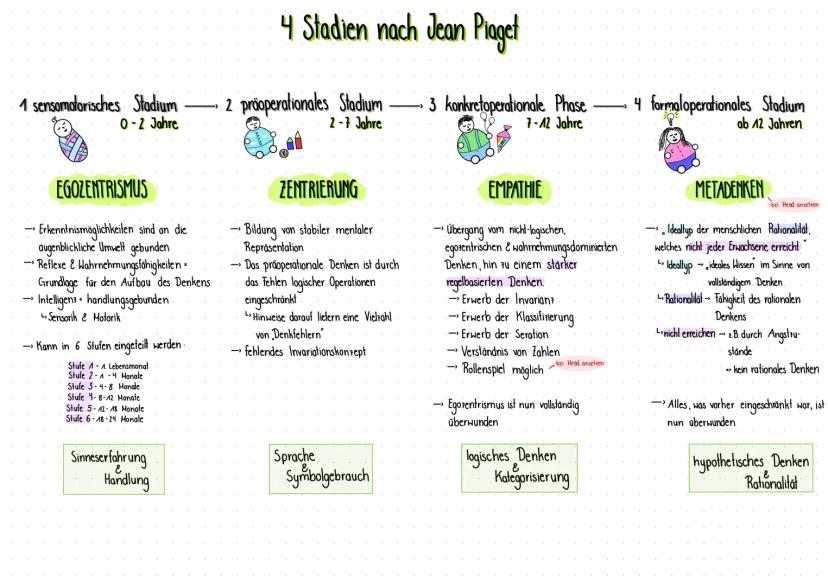 4 Stadien nach Jean Piaget
1 sensomotorisches Stadium → 2 präoperationales Stadium → 3 konkretoperationale Phase → 4 formaloperationales Stadium
0-2 Jahre
2-7 Jahre
7-12 Jahre
ab 12 Jahren
EGOZENTRISMUS
→ Erkenntnismöglichkeiten sind an die
augenblickliche Umwelt gebunden
→ Reflexe & Wahrnehmungsfähigkeiten =
Grundlage für den Aufbau des Denkens
→ Intelligenz = handlungsgebunden
↳ Sensorik & Motorik
→ Kann in 6 Stufen eingeteilt werden.
Stufe 1 - 1. Lebensmonat
Stufe 2 - 1 - 4 Monate
Stufe 3 - 4-8 Monate
Stufe 4 - 8-12 Monate
Stufe 5 - 12-18 Monate
Stufe 6 - 18-24 Monate
Sinneserfahrung
&
Handlung
ZENTRIERUNG
→ Bildung von stabiler mentaler
Repräsentation
→ Das präoperationale Denken ist durch
das Fehlen logischer Operationen
eingeschränkt
↳ Hinweise darauf liefern eine Vielzahl
von „Denkfehlern"
→ fehlendes Invarianzkonzept
Sprache
&
Symbolgebrauch
EMPATHIE
→ Übergang vom nicht-logischen,
egozentrischen & wahrnehmungsdominierten
Denken, hin zu einem stärker
regelbasierten Denken.
→ Erwerb der Invarianz
→ Erwerb der Klassifizierung
→ Erwerb der Seration
→ Verständnis von Zahlen
→ Rollenspiel möglich → bei Head ansehen
→ Egozentrismus ist nun vollständig
überwunden
logisches Denken
&
Kategorisierung
METADENKEN
bei Head ansehen
→ „Idealtyp der menschlichen Rationalität,
welches nicht jeder Erwachsene erreicht"
↳ Idealtyp → „ideales Wissen" im Sinne von
vollständigem Denken
↳ Rationalität → Fähigkeit des rationalen
Denkens
↳ nicht erreichen → z.B. durch Angstzu-
stände
↔ kein rationales Denken
→ Alles, was vorher eingeschränkt war, ist
nun überwunden
hypothetisches Denken
&
Rationalität